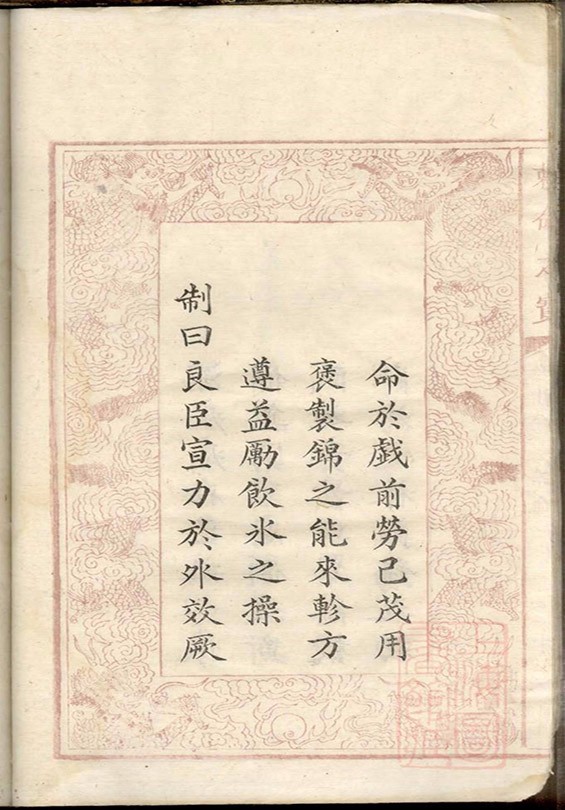 命於戲前勞已茂用
褒製錦之能來軫方
遵益勵飲氷之操
制曰良臣宣力於外效厥